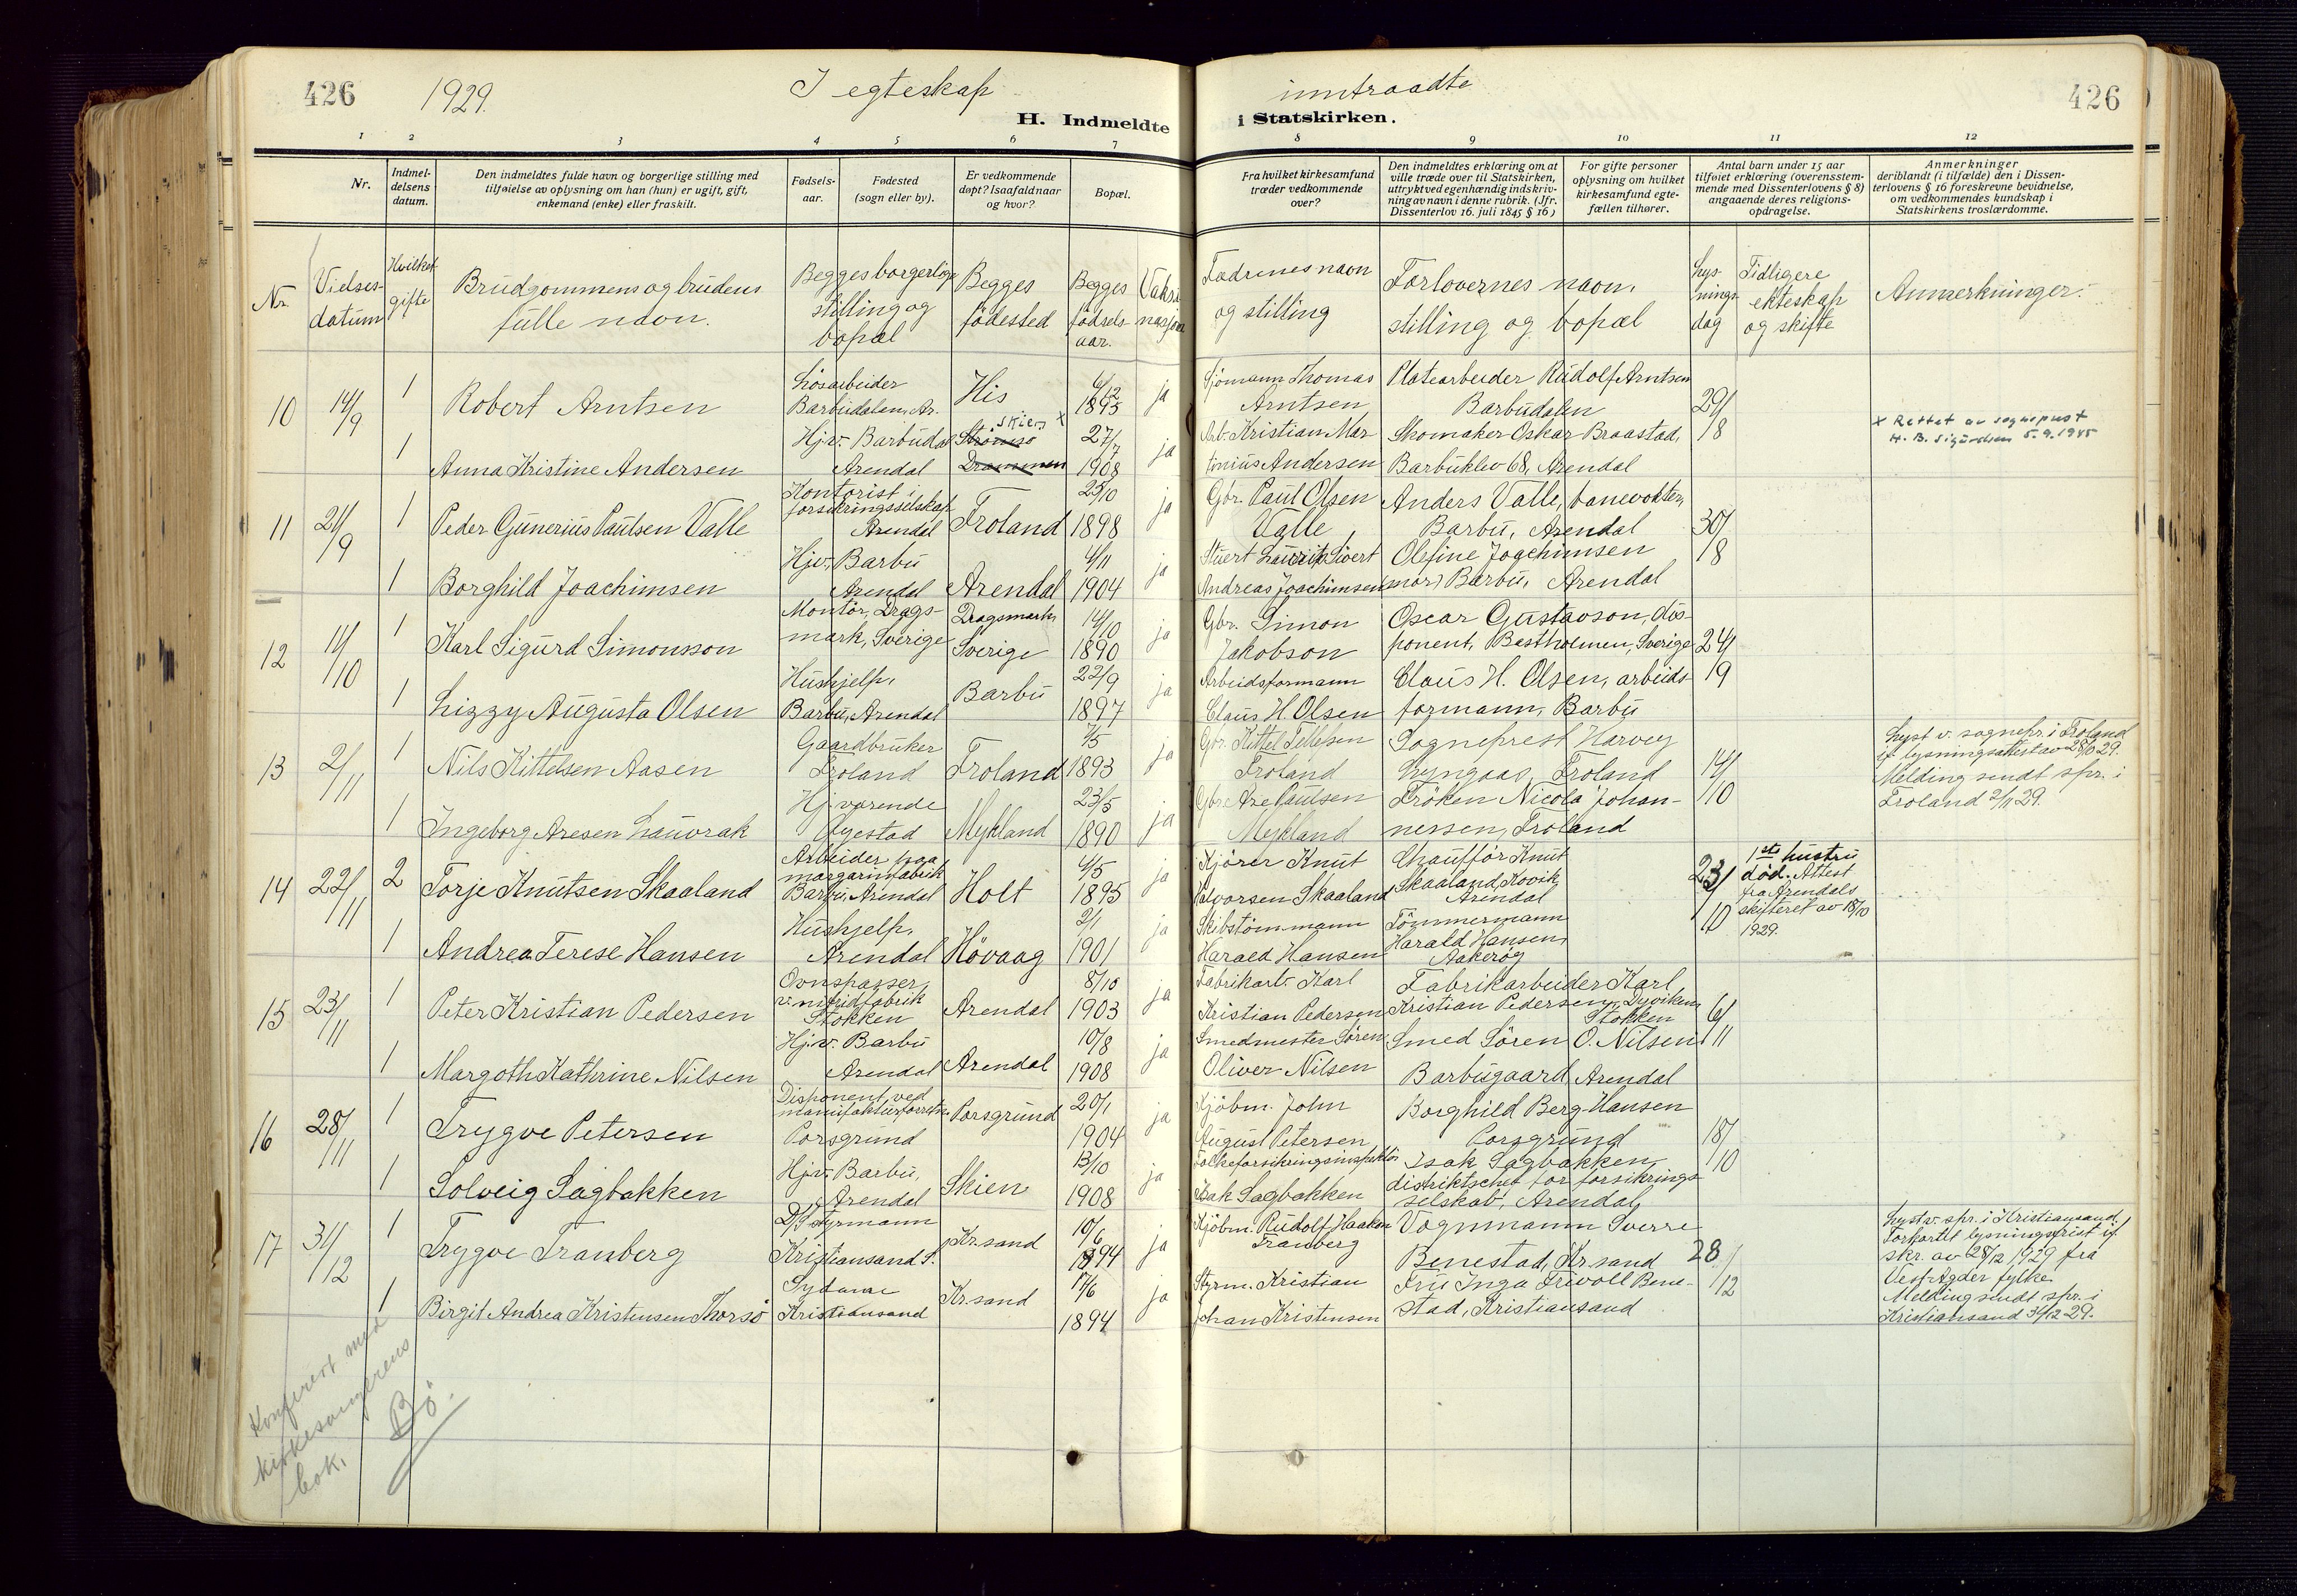 426
1929.
I egteskap
inntraadte
426
H. Indmeldte
i Statskirken.
1 2 3 4 5 6 7 8 9 10 11 12
Nr.
Indmel-
delsens
datum.
Den indmeldtes fulde navn og borgerlige stilling med
tilføielse av oplysning om han (hun) er ugift, gift,
enkemand (enke) eller fraskilt.
Fødsels-
aar.
Fødested
(sogn eller by).
Er vedkommende
døpt? Isaafald naar
og hvor?
Bopæl.
Fra hvilket kirkesamfund
træder vedkommende
over?
Den indmeldtes erklæring om at
ville træde over til Statskirken,
uttrykt ved egenhændig indskriv-
ning av navn i denne rubrik. (Jfr.
Dissenterlov 16. juli 1845 § 16)
For gifte personer
oplysning om hvilket
kirkesamfund egte-
fællen tilhører.
Antal barn under 15 aar
tilføiet erklæring (overensstem-
mende med Dissenterlovens § 8)
angaaende deres religions-
opdragelse.
Anmerkninger
deriblandt (i tilfælde) den i Dissen-
terlovens § 16 foreskrevne bevidnelse,
om vedkommendes kundskap i
Statskirkens troslærdomme.
Nr.
Vielses-
datum
Hvilket
gifte
Brudgommens og brudens
fulle navn.
Begges borgerlige
stilling og
bopæl
Begges
fødested
Begges
fødsels-
aar.
Fædrenes navn
og stilling
Forlovernes navn,
stilling og bopæl
Lys-
nings-
dag
Tidligere
ekteskap
og skifte
Anmerkninger.
10
14/9
1
Robert Arntsen
Løsarbeider
Barbudalen, Ar.
His
6/12
1895
ja
Sjømann Thomas
Arntsen
Platearbeider Rudolf Arntsen
Barbudalen
29/8
1
Anna Kristine Andersen
Hjv. Barbudal
Arendal
Skien x
Strømsø
Drammen
27/7
1908
ja
Arb. Kristian Mar
tinius Andersen
Skomaker Oskar Braastad,
Barbuklev 68, Arendal
x Rettet av sogneprest
H. B. Sigurdsen 5.9.1945
11
21/9
1
Peder Gunerius Paulsen Valle
Kontorist i
forsikringsselskap
Arendal
Froland
25/10
1898
ja
Gbr. Paul Olsen
Valle
Anders Valle, banevokter,
Barbu, Arendal
30/8
1
Borghild Joachimsen
Hjv. Barbu
Arendal
Arendal
4/11
1904
ja
Stuert Lauritz Sivert
Andreas Joachimsen
Olefine Joachimsen
(mor) Barbu, Arendal
12
11/10
1
Karl Sigurd Simonsson
Montør, Drags-
mark, Sverige
Dragsmark
Sverige
14/10
1890
ja
Gbr. Simon
Jakobson
Oscar Gustavson, dis-
ponent, Bastholmen, Sverige
24/9
1
Lizzy Augusta Olsen
Hushjelp,
Barbu, Arendal
Barbu
22/9
1897
ja
Arbeidsformann
Claus H. Olsen
Claus H. Olsen, arbeids-
formann, Barbu
13
2/11
1
Nils Kittelsen Aasen
Gaardbruker
Froland
Froland
4/5
1893
ja
Gbr. Kittel Tellefsen
Froland
Sogneprest Harvey
Lyngaas, Froland
14/10
Lyst v. sognepr. i Froland
if. lysningsattest av 28/10 29.
Melding sendt spr. i
Froland 2/11 29.
1
Ingeborg Aresen Lauvrak
Hj.værende
Øyestad
Mykland
23/5
1890
ja
Gbr. Are Paulsen
Mykland
Frøken Nicola Johan-
nessen, Froland
14
22/11
2
Torje Knutsen Skaaland
Arbeider paa
margarinfabrik
Barbu, Arendal
Holt
4/5
1895
ja
Kjører Knut
Halvorsen Skaaland
Chauffør Knut
Skaaland, Kovik,
Arendal
23/10
1ste hustru
død. Attest
fra Arendals
skifteret av 18/10
1929.
1
Andrea Terese Hansen
Hushjelp,
Arendal
Høvaag
2/1
1901
ja
Skibstømmermann
Harald Hansen
Tømmermann
Harald Hansen,
Aakerøy
15
23/11
1
Peter Kristian Pedersen
Ovnspasser
v. nitridfabrik
Stokken
Arendal
8/10
1903
ja
Fabrikarb. Karl
Kristian Pedersen
Fabrikarbeider Karl
Kristian Pedersen, Dyviken,
Stokken
6/11
1
Margoth Kathrine Nilsen
Hjv. Barbu
Arendal
Arendal
10/8
1908
ja
Smedmester Søren
Oliver Nilsen
Smed Søren O. Nilsen
Barbugaard, Arendal
16
28/11
1
Trygve Petersen
Disponent ved
manufakturforretn.
Porsgrund
Porsgrund
20/1
1904
ja
Kjøbm. John
August Petersen
Borghild Berg-Hansen
Porsgrund
18/10
1
Solveig Sagbakken
Hjv. Barbu,
Arendal
Skien
13/10
1908
ja
Folkeforsikringsinspektør
Isak Sagbakken
Isak Sagbakken,
distriktschef for forsikrings-
selskab, Arendal
17
31/12
1
Trygve Tranberg
D/S styrmann
Kristiansand S.
Kr.sand
10/6
1894
ja
Kjøbm. Rudolf Haaken
Tranberg
Vognmann Sverre
Benestad, Kr.sand
28/12
Lyst v. spr. i Kristiansand.
Forkortet lysningsfrist if.
skr. av 28/12 1929 fra
Vest-Agder fylke.
Melding sendt spr. i
Kristiansand 31/12 29.
1
Birgit Andrea Kristensen Thorsø
Sydame
Kristiansand
Kr.sand
17/6
1894
ja
Styrm. Kristian
Johan Kristensen
Fru Inga Trivoll Bene-
stad, Kristiansand
Konferert med
kirkesangerens
bok.
Bö.